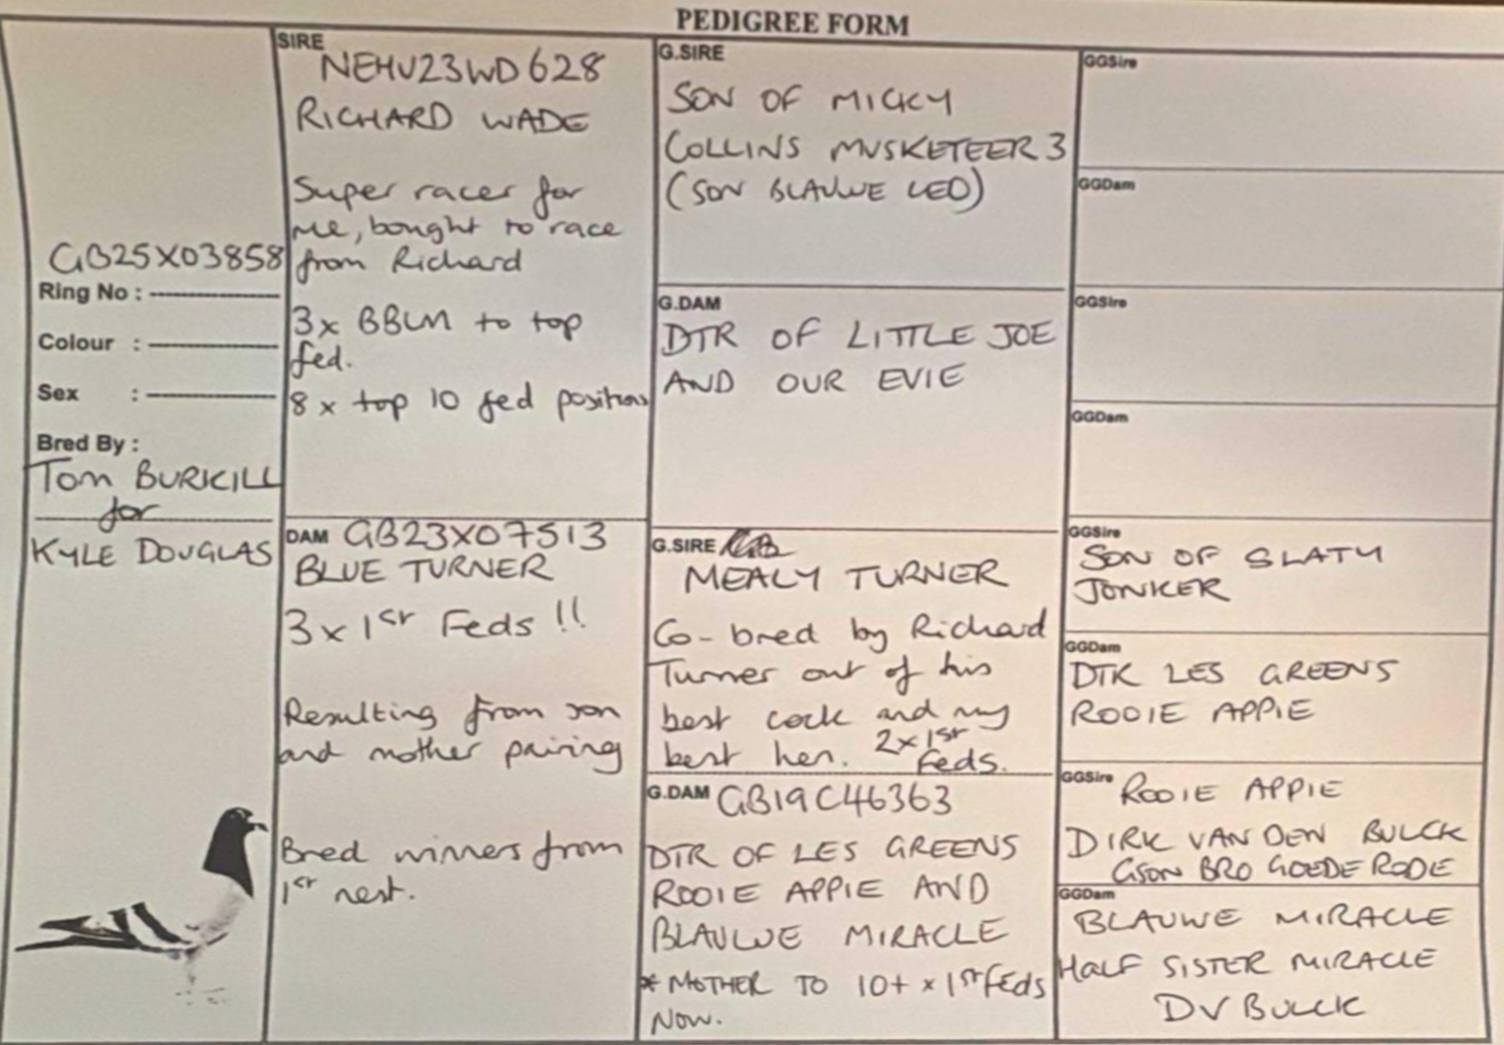 PEDIGREE FORM
GB25X03858
Ring No :
Colour :
Sex :
Bred By :
Tom BURKILL
for
KYLE DOUGLAS
SIRE
NEHU23WD628
RICHARD WADE
Super racer for
me, bought to race
from Richard
3x BBLM to top
fed.
8 x top 10 fed positions
DAM GB23X07513
BLUE TURNER
3 x 1st Feds !!
Resulting from son
and mother pairing
Bred winners from
1st nest.
G.SIRE
SON OF MICKY
COLLINS MUSKETEER 3
(SON BLAUWE LEO)
G.DAM
DTR OF LITTLE JOE
AND OUR EVIE
G.SIRE
MEALY TURNER
Co-bred by Richard
Turner out of his
best cock and my
best hen. 2x 1st
Feds.
G.DAM GB19C46363
DTR OF LES GREENS
ROOIE APPIE AND
BLAUWE MIRACLE
* MOTHER TO 10+ x 1st Feds
Now.
GGSire
GGDam
GGSire
GGDam
GGSire
SON OF SLATY
JONKER
GGDam
DTR LES GREENS
ROOIE APPIE
GGSire ROOIE APPIE
DIRK VAN DEN BULCK
GSON BRO GOEDE RODE
GGDam
BLAUWE MIRACLE
HALF SISTER MIRACLE
DV BULCK